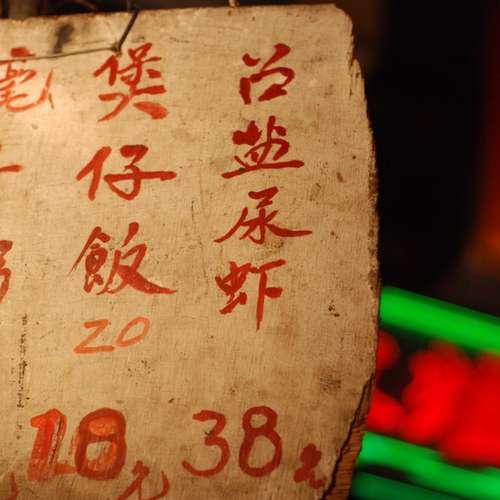 盐尿虾
38元
煲仔飯
20
18元